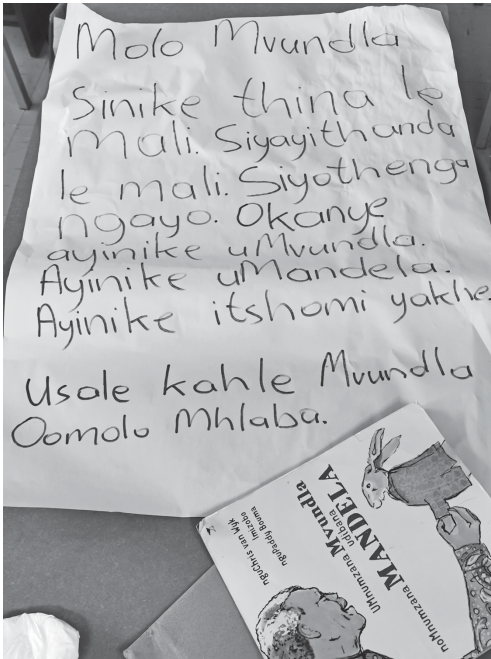 Molo Mvundla
Sinike thina le
mali. Siyayithanda
le mali. Siyothenga
ngayo. Okanye
ayinike uMvundla.
Ayinike uMandela.
Ayinike itshomi yakhe.
Usale kahle Mvundla
Oomolo Mhlaba.
noMnumzana MANDELA
udibana
UMnumzana Mvundla
nguChris van Wyk
Imizobo
nguPaddy Bouma